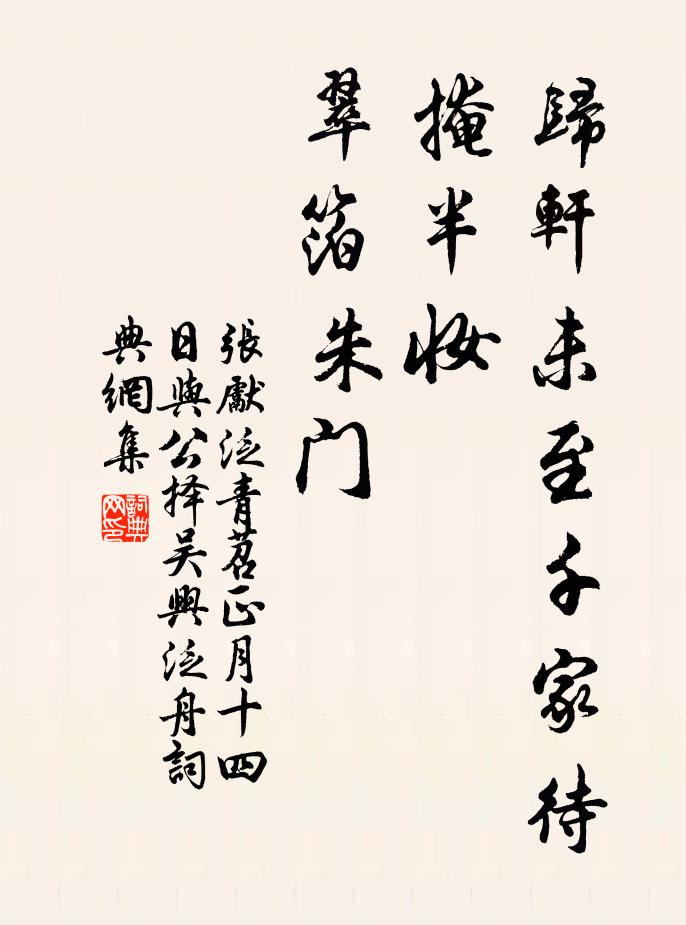 歸軒未至千家待
掩半妝
翠箔朱門
張獻泛青苕正月十四
日與公择吴興泛舟詞
典網集
詞典网印